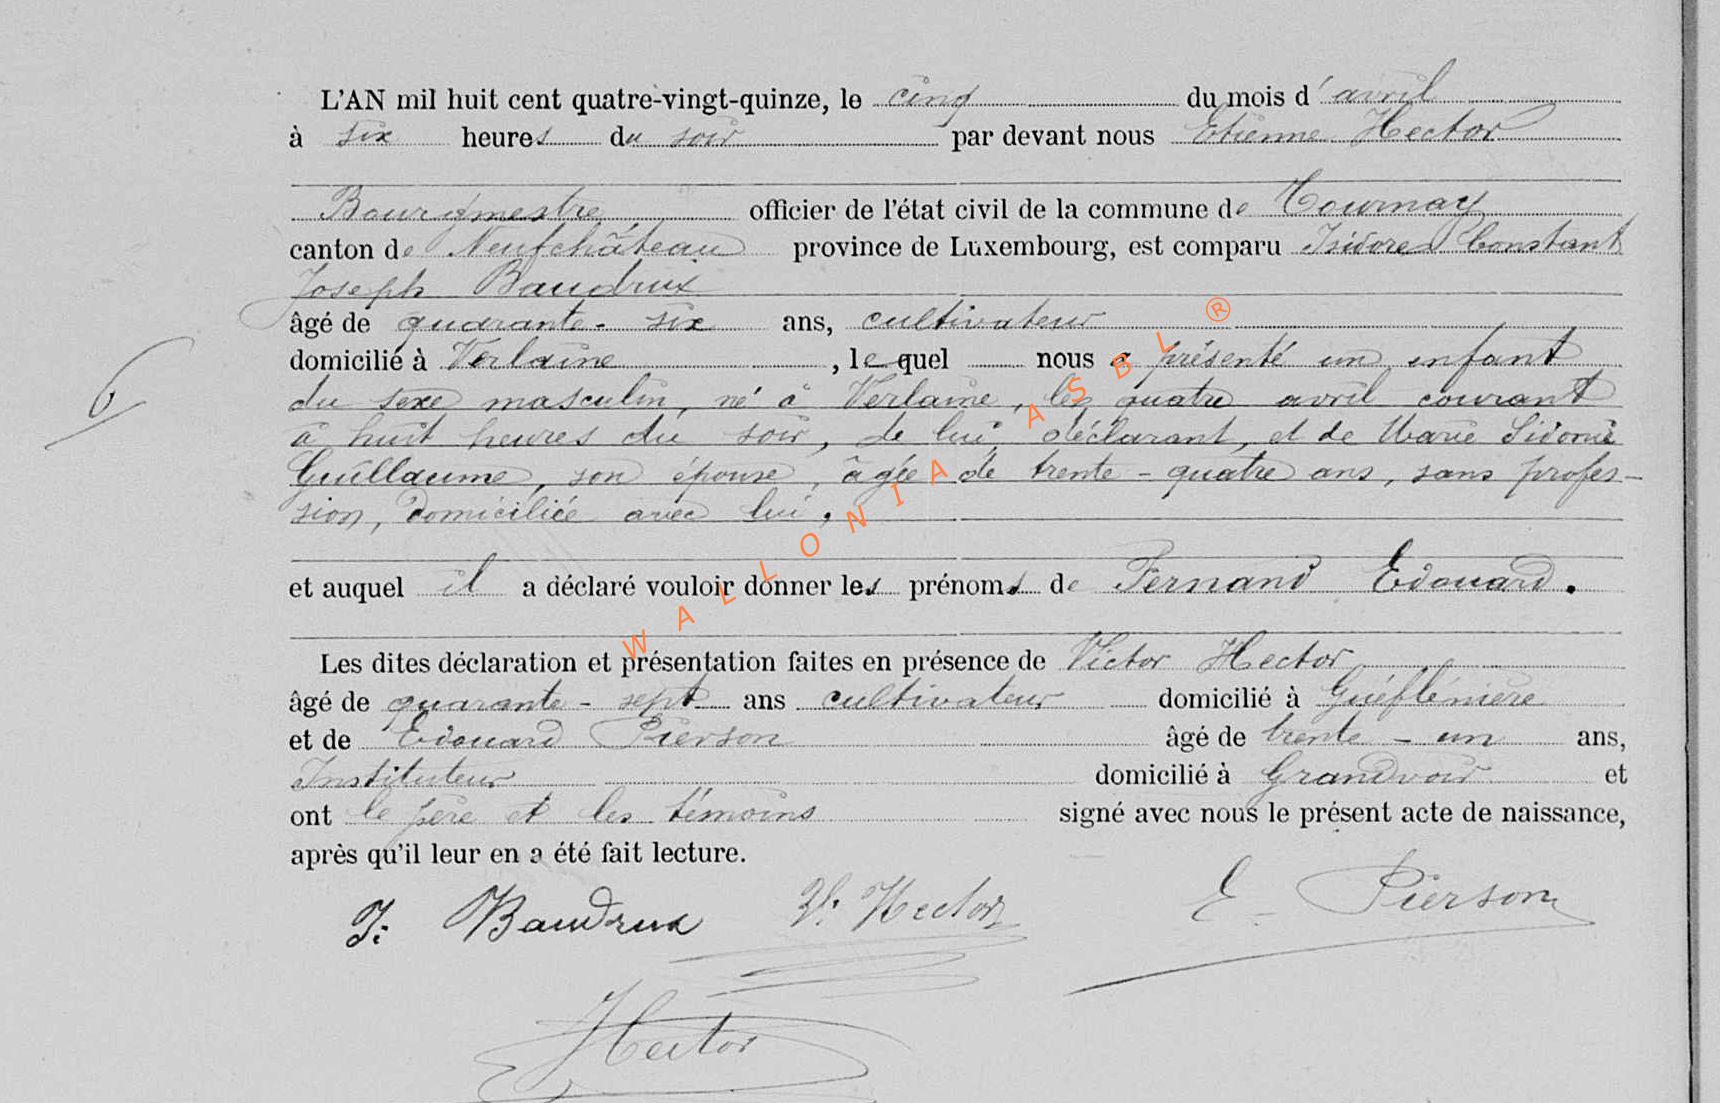 L'AN mil huit cent quatre-vingt-quinze, le cinq du mois d'avril
à six heures du soir par devant nous Etienne Hector
Bourgmestre officier de l'état civil de la commune de Tournay
canton de Neufchâteau province de Luxembourg, est comparu Isidore Constant
Joseph Baudrux
âgé de quarante-six ans, cultivateur
domicilié à Verlaine, lequel nous a présenté un enfant
du sexe masculin, né à Verlaine, le quatre avril courant
à huit heures du soir, de lui déclarant, et de Marie Sidonie
Guillaume, son épouse, âgée de trente-quatre ans, sans profes-
sion, domiciliée avec lui,
et auquel il a déclaré vouloir donner les prénoms de Fernand Edouard.
Les dites déclaration et présentation faites en présence de Victor Hector
âgé de quarante-sept ans cultivateur domicilié à
et de Edouard Pierson âgé de trente-un ans,
Instituteur domicilié à Grandvoir et
ont le père et les témoins signé avec nous le présent acte de naissance,
après qu'il leur en a été fait lecture.
J. Baudrux V. Hector E. Pierson
Hector
6
WALLONIA ASBL ®